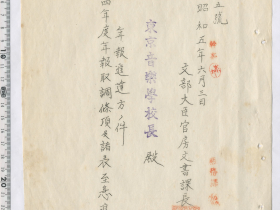 五號
昭和五年六月三日
文部大臣官房文書課長
東京音樂學校長 殿
年報進達方ノ件
四年度年報取調條項及諸表至急